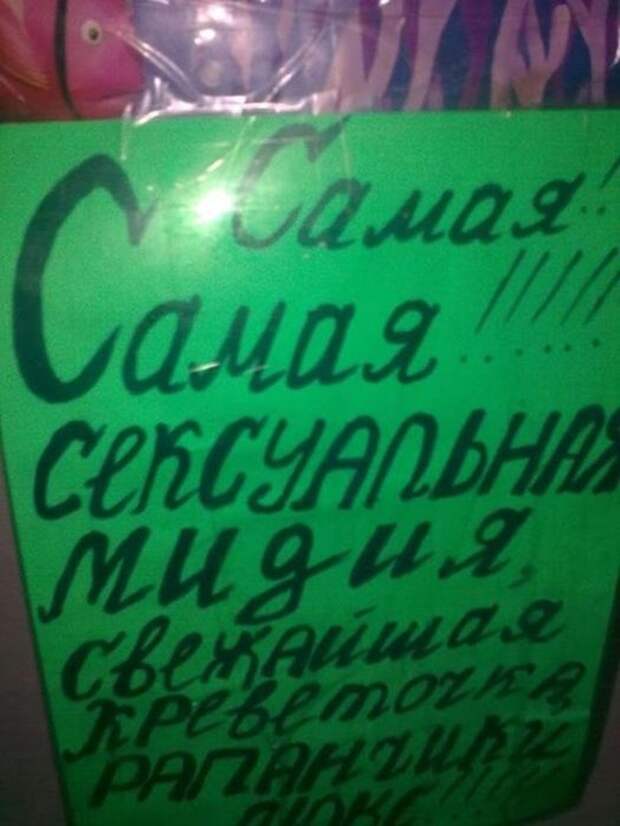 Самая!!
Самая!!!!!
СЕКСУАЛЬНАЯ
МИДИЯ,
СВЕЖАЙШАЯ
КРЕВЕТОЧКА
РАПАНЧИКИ
ЛЮКС!!!!!